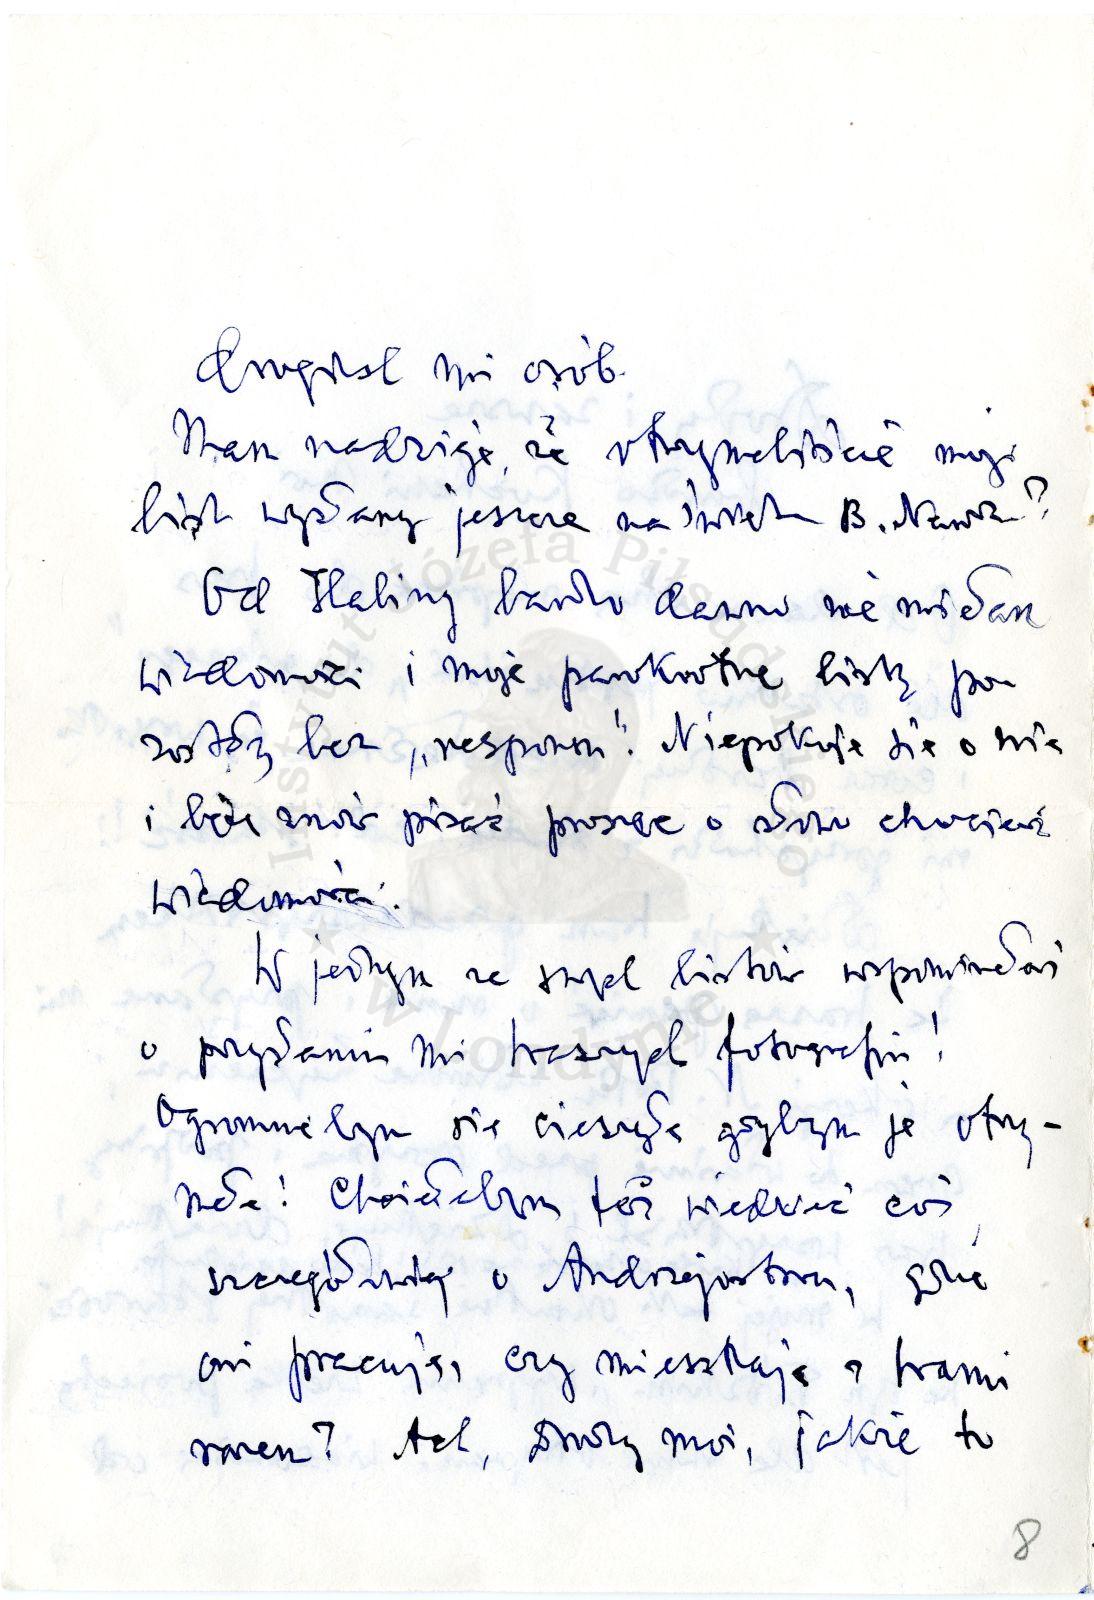 drogich mi osób.
Mam nadzieję, że otrzymaliście mój
list wysłany jeszcze na święta B. Narodz?
Od Haliny bardzo dawno nie miałam
wiadomości i moje parokrotne listy po-
zostały bez „respons”. Niepokoję się o nią
i będę znów pisać prosząc o słowo chociaż
wiadomości.
W jednym ze swych listów wspomniałaś
o przysłaniu mi Waszych fotografii!
Ogromnie bym się cieszyła gdybym je otrzy-
mała! Chciałabym też wiedzieć coś
szczegółowiej o Andrzejostwu, gdzie
oni pracują, czy mieszkają z Wami
razem? Ach, Drodzy moi, jakże to
8
Instytut Józefa Piłsudskiego
w Londynie